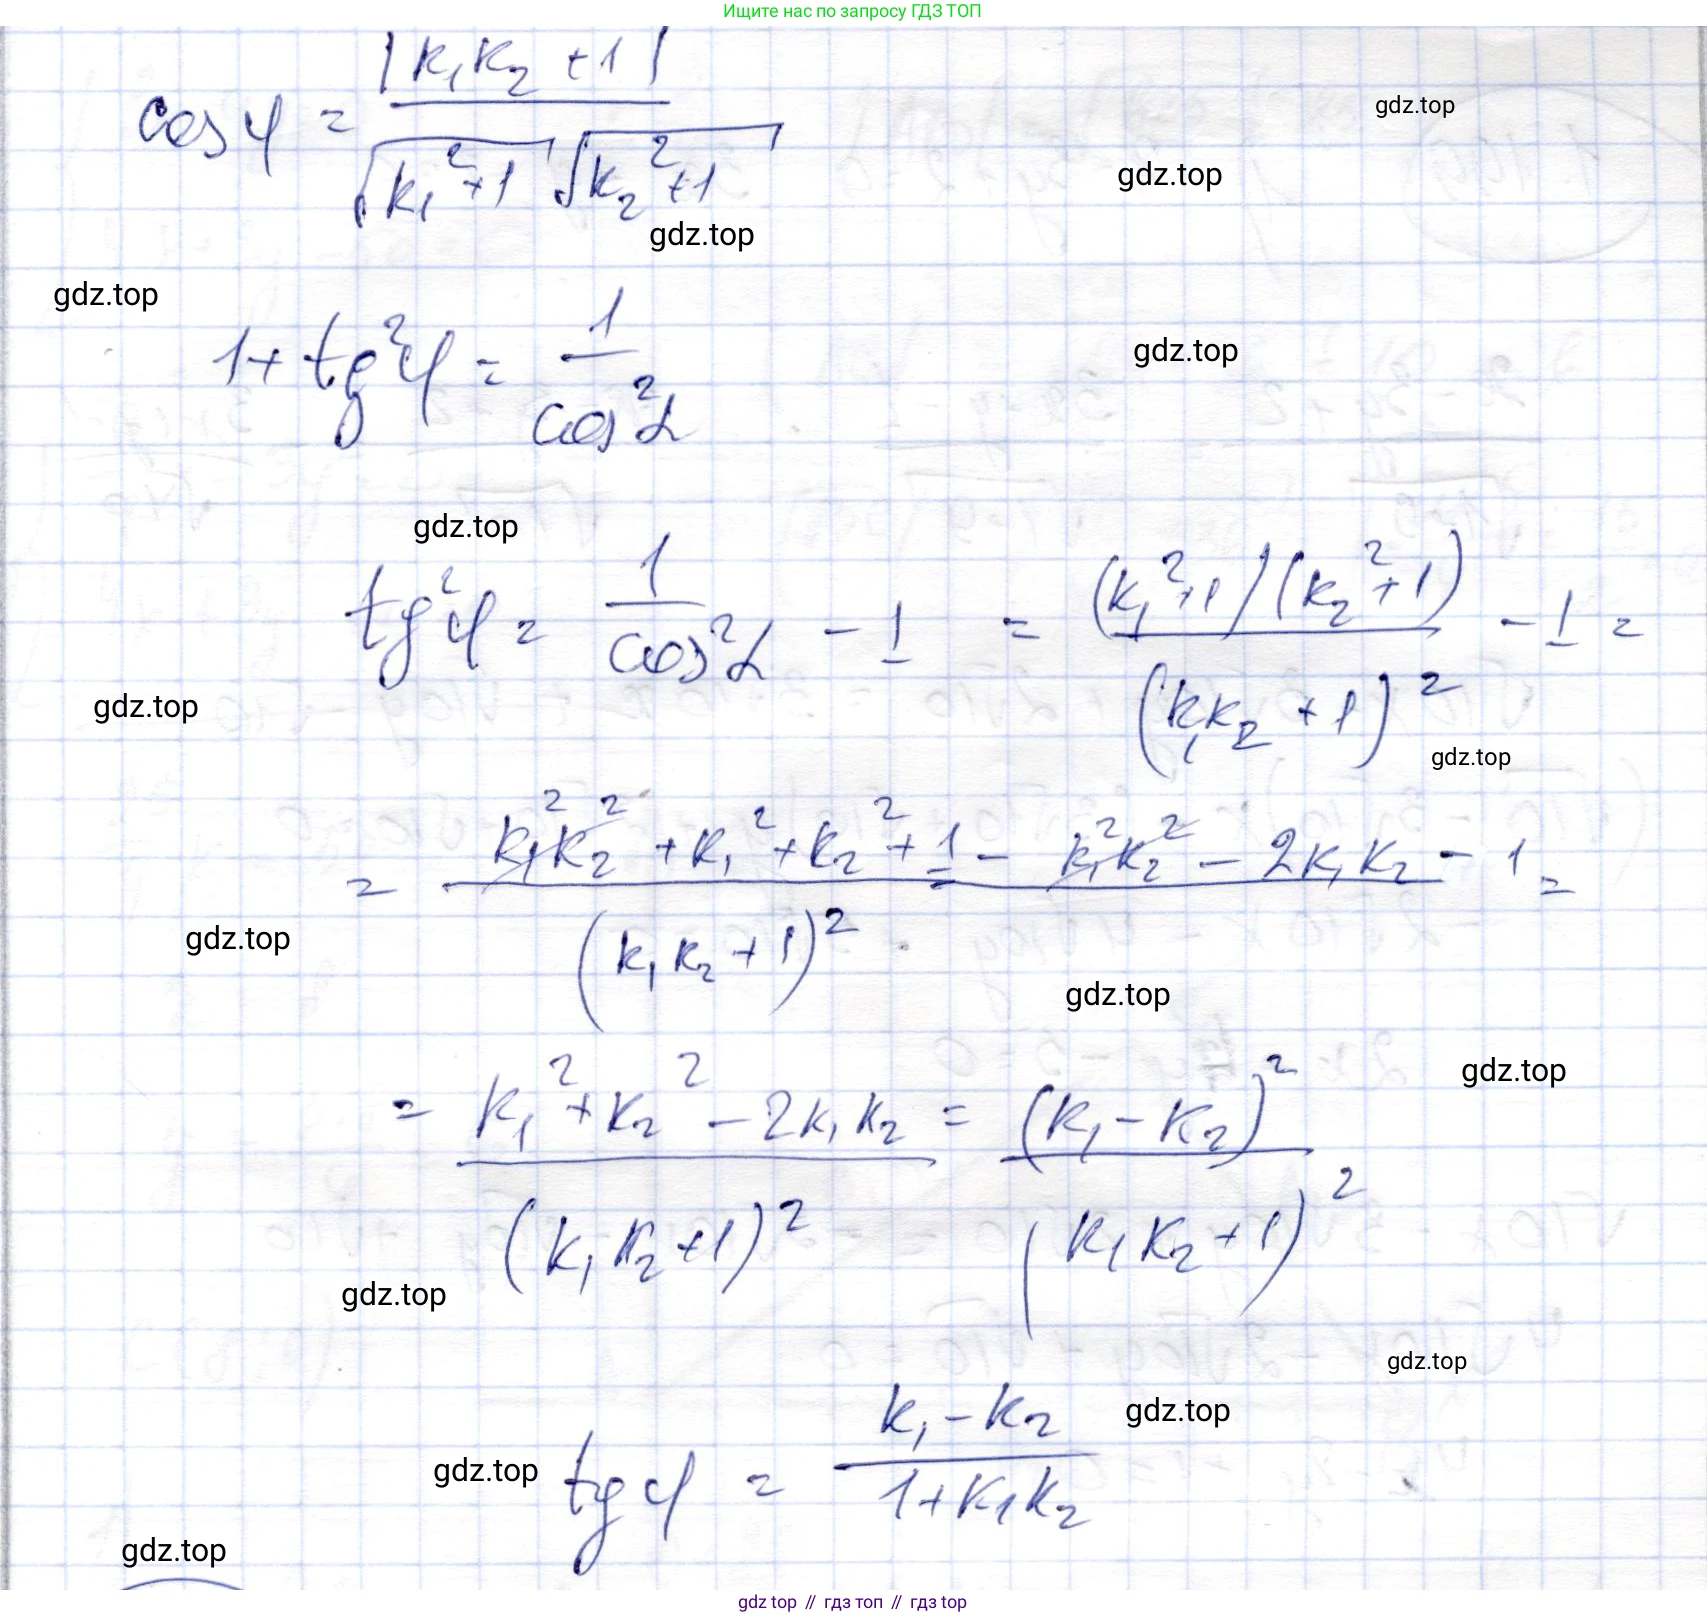 Ищите нас по запросу ГДЗ ТОП
cos φ = |k₁k₂ + 1| / √(k₁² + 1) √(k₂² + 1)
gdz.top
gdz.top
gdz.top
gdz.top
1 + tg²φ = 1 / cos²α
gdz.top
gdz.top
tg²φ = 1 / cos²α - 1 = (k₁² + 1)(k₂² + 1) / (k₁k₂ + 1)² - 1 =
gdz.top
gdz.top
= k₁²k₂² + k₁² + k₂² + 1 - k₁²k₂² - 2k₁k₂ - 1 / (k₁k₂ + 1)² =
gdz.top
gdz.top
gdz.top
= k₁² + k₂² - 2k₁k₂ / (k₁k₂ + 1)² = (k₁ - k₂)² / (k₁k₂ + 1)²
gdz.top
gdz.top
gdz.top
gdz.top
tg φ = k₁ - k₂ / 1 + k₁k₂
gdz.top
gdz top // гдз топ // гдз top